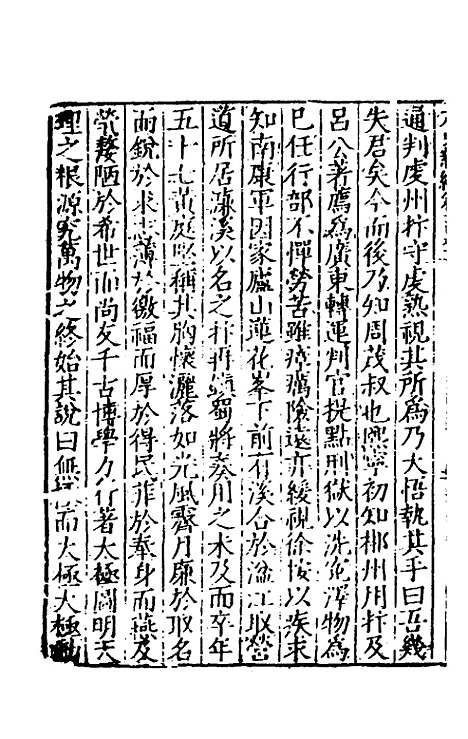 通判虔州抃守虔熟視其所爲乃大悟執其手曰吾幾
失君矣今而後乃知周茂叔也熙寧初知郴州用抃及
呂公著薦爲廣東轉運判官提點刑獄以洗冤澤物爲
已任行部不憚勞苦雖瘴癘險遠亦緩視徐按以疾求
知南康軍因家廬山蓮花峯下前有溪合於湓江取營
道所居濂溪以名之抃再鎮蜀將奏用之未及而卒年
五十七黃庭堅稱其胸懷灑落如光風霽月廉於取名
而銳於求志薄於徼福而厚於得民菲於奉身而燕及
煢嫠陋於希世而尚友千古博學力行著太極圖明天
理之根源究萬物之終始其說曰無極而太極太極動